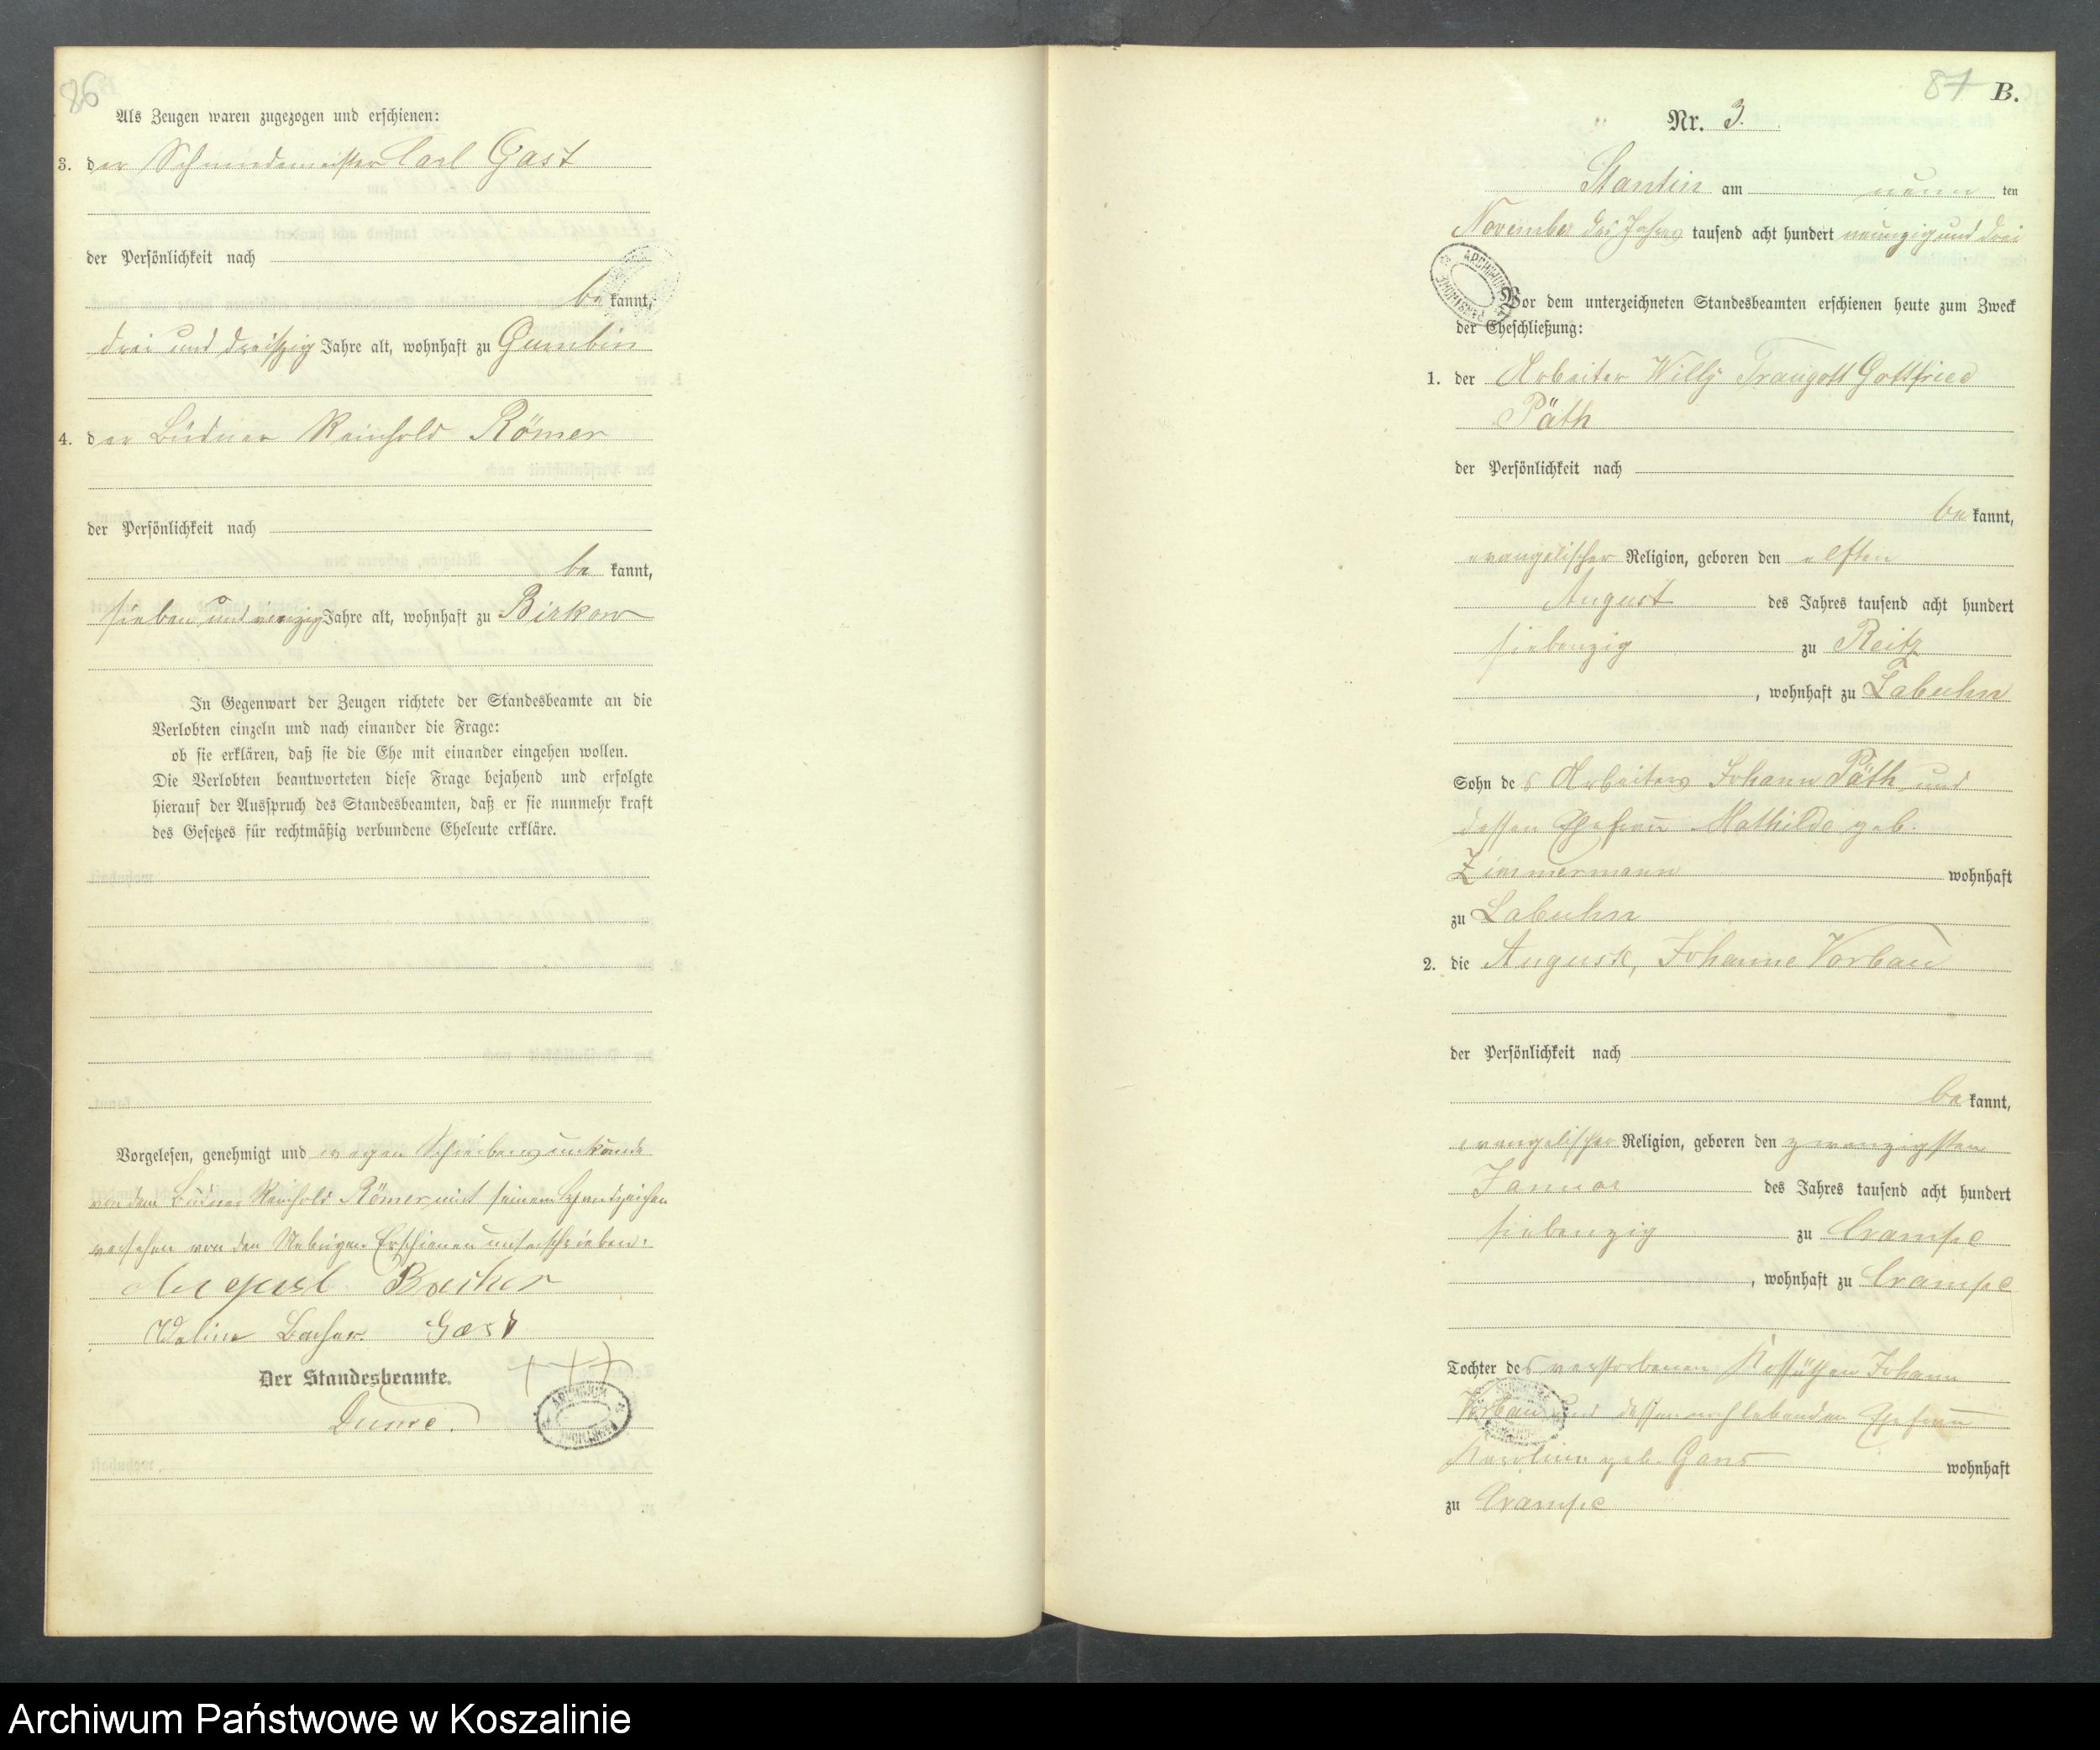 86
Als Zeugen waren zugezogen und erschienen:
3. der Schmiedemeister Carl Gast
der Persönlichkeit nach
be kannt,
drei und dreißig Jahre alt, wohnhaft zu Gumbin
4. der Büdner Reinhold Römer
der Persönlichkeit nach
be kannt,
sieben und vierzig Jahre alt, wohnhaft zu Birkow
In Gegenwart der Zeugen richtete der Standesbeamte an die
Verlobten einzeln und nach einander die Frage:
ob sie erklären, daß sie die Ehe mit einander eingehen wollen.
Die Verlobten beantworteten diese Frage bejahend und erfolgte
hierauf der Ausspruch des Standesbeamten, daß er sie nunmehr kraft
des Gesetzes für rechtmäßig verbundene Eheleute erkläre.
Vorgelesen, genehmigt und wegen Schreibensunkunde
von dem Büdner Reinhold Römer mit seinem Handzeichen
versehen von den Uebrigen Erschienen unterschrieben.
August
Gast
+++
Der Standesbeamte.
87 B.
Nr. 3.
Stantin am neun ten
November des Jahres tausend acht hundert neunzig und drei
Vor dem unterzeichneten Standesbeamten erschienen heute zum Zweck
der Eheschließung:
1. der Arbeiter Willy Traugott Gottfried
Päth
der Persönlichkeit nach
be kannt,
evangelischer Religion, geboren den elften
August des Jahres tausend acht hundert
siebenzig zu Reitz
, wohnhaft zu Labuhn
Sohn des Arbeiters Johann Päth und
dessen Ehefrau Mathilde geb.
Zimmermann wohnhaft
zu Labuhn
2. die Auguste, Johanne Vorbau
der Persönlichkeit nach
be kannt,
evangelischer Religion, geboren den zwanzigsten
Januar des Jahres tausend acht hundert
siebenzig zu Crampe
, wohnhaft zu Crampe
Tochter des verstorbenen Kossäthen Johann
Vorbau und dessen noch lebenden Ehefrau
Karoline geb. Gans wohnhaft
zu Crampe
Archiwum Państwowe w Koszalinie